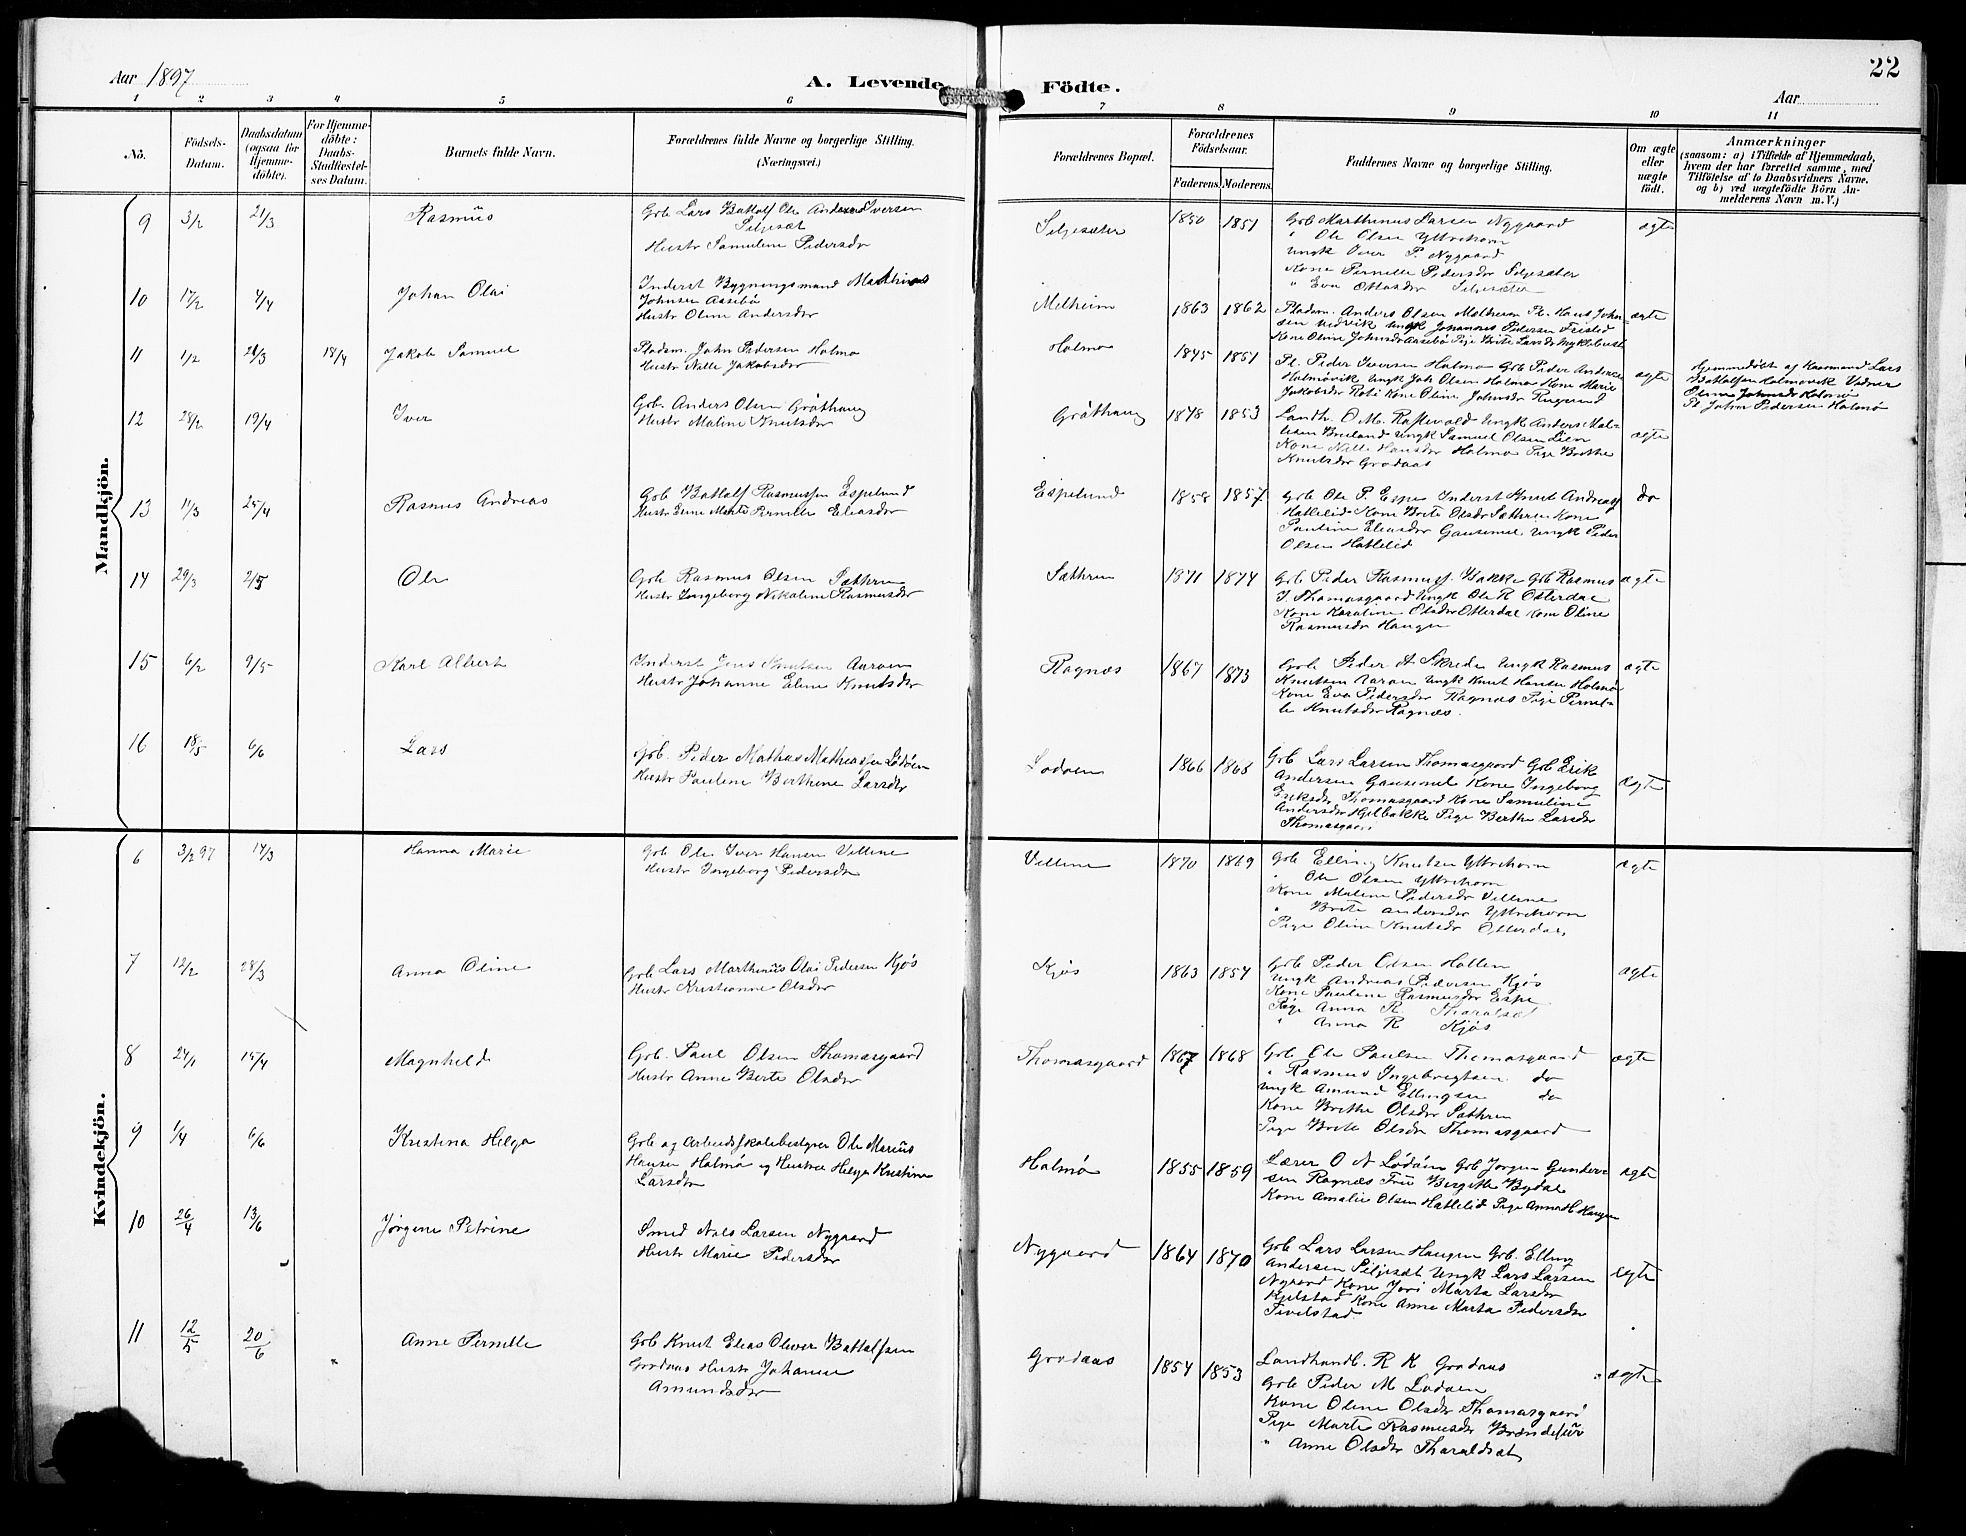 Aar 1897
A. Levende Födte.
22
Aar
1 2 3 4 5 6 7 8 9 10 11
No.
Födsels-Datum.
Daabsdatum (ogsaa for Hjemme-döbte).
For Hjemme-döbte: Daabs-Stadfæstel-ses Datum.
Barnets fulde Navn.
Forældrenes fulde Navne og borgerlige Stilling. (Næringsvei.)
Forældrenes Bopæl.
Forældrenes Födselsaar.
Faderens. Moderens.
Faddernes Navne og borgerlige Stilling.
Om ægte eller uægte födt.
Anmærkninger
(saasom: a) i Tilfælde af Hjemmedaab,
hvem der har forrettet samme, med
Tilföielse af to Daabsvidners Navne.
og b) ved uægtefödte Börn An-
melderens Navn m. V.)
Mandkjön.
9 3/2 21/3 Rasmus
Gbr Lars Battolf Ole Iversen
Siljesæt
Hustr Samuline Pedersdr
Siljesæter 1850 1851
Gbr Marthinus Larsen Nygaard
" Ole Olsen Yttrehorn
Ungk Iver P. Nygaard
Kone Pernille Pedersdr Siljesæter
" Eva Ottosdr Siljesæter
ægte
10 17/2 4/4 Johan Olai
Inderst Bygningsmand Mathias
Johnsen Aasebö
Hustr Oline Andersdr
Melheim 1863 1862
Pladsm. Anders Olsen Melheim Pl. Knut John-
sen Nedvik Ungk Johannes Pedersen Tristed
Kone Oline Johnsdr Aasebö Pige Brite Larsdr Myklebust
ægte
11 1/2 21/3 18/4 Jakob Samuel
Pladsm. John Pedersen Holmø
Hustr Nille Jakobsdr
Holmø 1845 1851
Pl. Peder Iversen Holmø Gbr Peder Andersen
Holmøvik Ungk Joh Olsen Holmø Kone Marie
Jakobsdr Roti Kone Oline Johnsdr Rusgund
ægte
Hjemmedöbt af Kaarmand Lars
Battolfsen Holmøvik Vidner
Oline Johnsdr Holmø
Pl John Pedersen Holmø
12 28/2 19/4 Iver
Gbr. Anders Olsen Gröthaug
Hustr Maline Knutsdr
Gröthaug 1848 1853
Landh. O M. Raftevold Ungk Anders Mal-
Ungk Samuel Olsen Lien
Kone Nille Hansdr Holmø Pige Brithe
Knutsdr Grodaas
ægte
13 11/3 25/4 Rasmus Andreas
Gbr Battolf Rasmussen Espelund
Hustr Marte Pernille Eliasdr
Espelund 1858 1857
Gbr Ole P. Espe Inderst Knut Andreas
Hatlelid Kone Brite Olsdr Sæthren Kone
Pauline Eliasdr Gausemel Ungk Peder
Olsen Hatlelid
do
14 29/3 2/5 Ole
Gbr Rasmus Olsen Sæthren
Hustr Ingeborg Nikoline Rasmusdr
Sæthren 1871 1874
Gbr Peder Rasmuss. Bakke Gbr Rasmus
I Thomasgaard Ungk Ole R Otterdal
Kone Karoline Olsdr Otterdal Kone Oline
Rasmusdr Haugen
ægte
15 6/2 9/5 Karl Albert
Inderst Jens Knutsen Aaroen
Hustr Johanne Eline Knutsdr
Ragnæs 1867 1873
Gbr. Peder A Skrede Ungk Rasmus
Knutsen Aaroen Ungk Knut Hansen Holmø
Kone Eva Pedersdr Ragnæs Pige Pernil-
le Knutsdr Ragnæs.
ægte
16 18/5 6/6 Lars
Gbr. Peder Mathias Mathiassen Lödöen
Hustr Pauline Berthine Larsdr
Lodøen 1866 1868
Gbr Lars Larsen Thomasgaard Gbr Erik
Andersen Gausemel Kone Ingeborg
Eriksdr Thomasgaard Kone Samuline
Andersdr Hjelbakke Pige Berthe Larsdr
Thomasgaard
ægte
Kvindekjön.
6 3/2 97 14/3 Hanna Marie
Gbr Ole Iver Hansen Vellene
Hustr Ingeborg Pedersdr
Vellene 1870 1869
Gbr Elling Knutsen Yttrehorn
" Ole Olsen Yttrehorn
Kone Maline Pedersdr Vellene
" Brite Andersdr Yttrehorn
Pige Oline Knutsdr Otterdal
ægte
7 12/2 28/3 Anna Oline
Gbr Lars Marthinus Olai Pedersen Kjøs
Hustr Kristianne Olsdr
Kjøs 1863 1854
Gbr Peder Olsen Hollen
Ungk Andreas Pedersen Kjøs
Kone Pauline Rasmusdr Espe
Pige Anna R. Tharaldsæt
" Anna R Kjøs
ægte
8 24/1 15/4 Magnhild
Gbr. Paul Olsen Thomasgaard
Hustr Anne Berte Olsdr
Thomasgaard 1867 1868
Gbr Ole Paulsen Thomasgaard
" Rasmus Ingebrigtsen do
Ungk Amund Ellingsen do
Kone Brithe Olsdr Sæthren
Pige Brite Olsdr Thomasgaard
ægte
9 1/4 6/6 Kristina Helga
Gbr og Arbeidsskolebestyrer Ole Marius
Hansen Holmø og Hustru Helga Kristine
Larsdr
Holmø 1855 1859
Lærer O N Lödöen Gbr Jörgen Gunder-
sen Ragnæs Fru Bergitte Bydal
Kone Amalie Olsen Hatlelid Pige Anna H. Haugen
ægte
10 26/4 13/6 Jørgine Petrine
Smed Nils Larsen Nygaard
Hustr Marie Pedersdr
Nygaard 1864 1870
Gbr Lars Larsen Haugen Gbr. Elling
Andersen Siljesæt Ungk Lars Larsen
Nygaard Kone Jori Marta Larsdr
Kjelstad Kone Anne Marta Pedersdr
Tivelstad
ægte
11 12/5 20/6 Anne Pernille
Gbr Knut Elias Oliver Battolfsen
Grodaas Hustr Johanne
Amundsdr
Grodaas 1854 1853
Landhandl. R K Grodaas
Gbr Peder M Lodøen
Kone Oline Olsdr Thomasgaard
Pige Marte Rasmusdr Brændefur
" Anne Olsdr Tharaldsæt
ægte